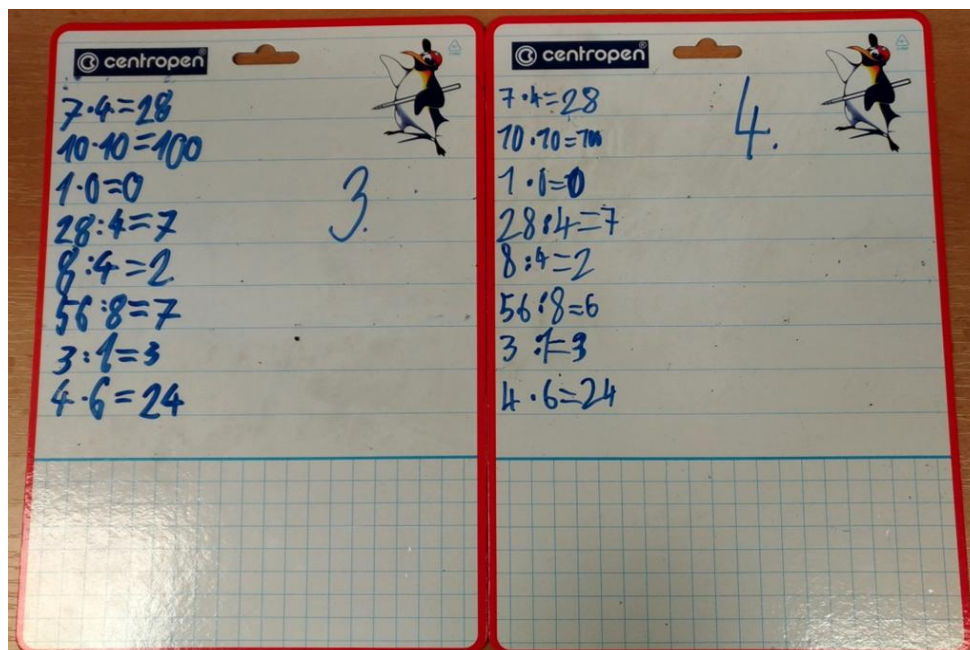 centropen
7·4=28
10·10=100
1·0=0
3.
28:4=7
8:4=2
56:8=7
3:1=3
4·6=24
centropen
7·4=28
4.
10·10=100
1·0=0
28:4=7
8:4=2
56:8=6
3:1=3
4·6=24